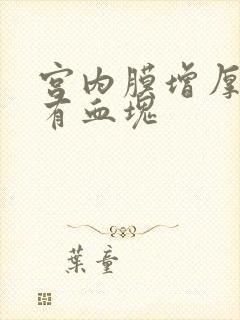 宫内膜增厚
有血块
葉童